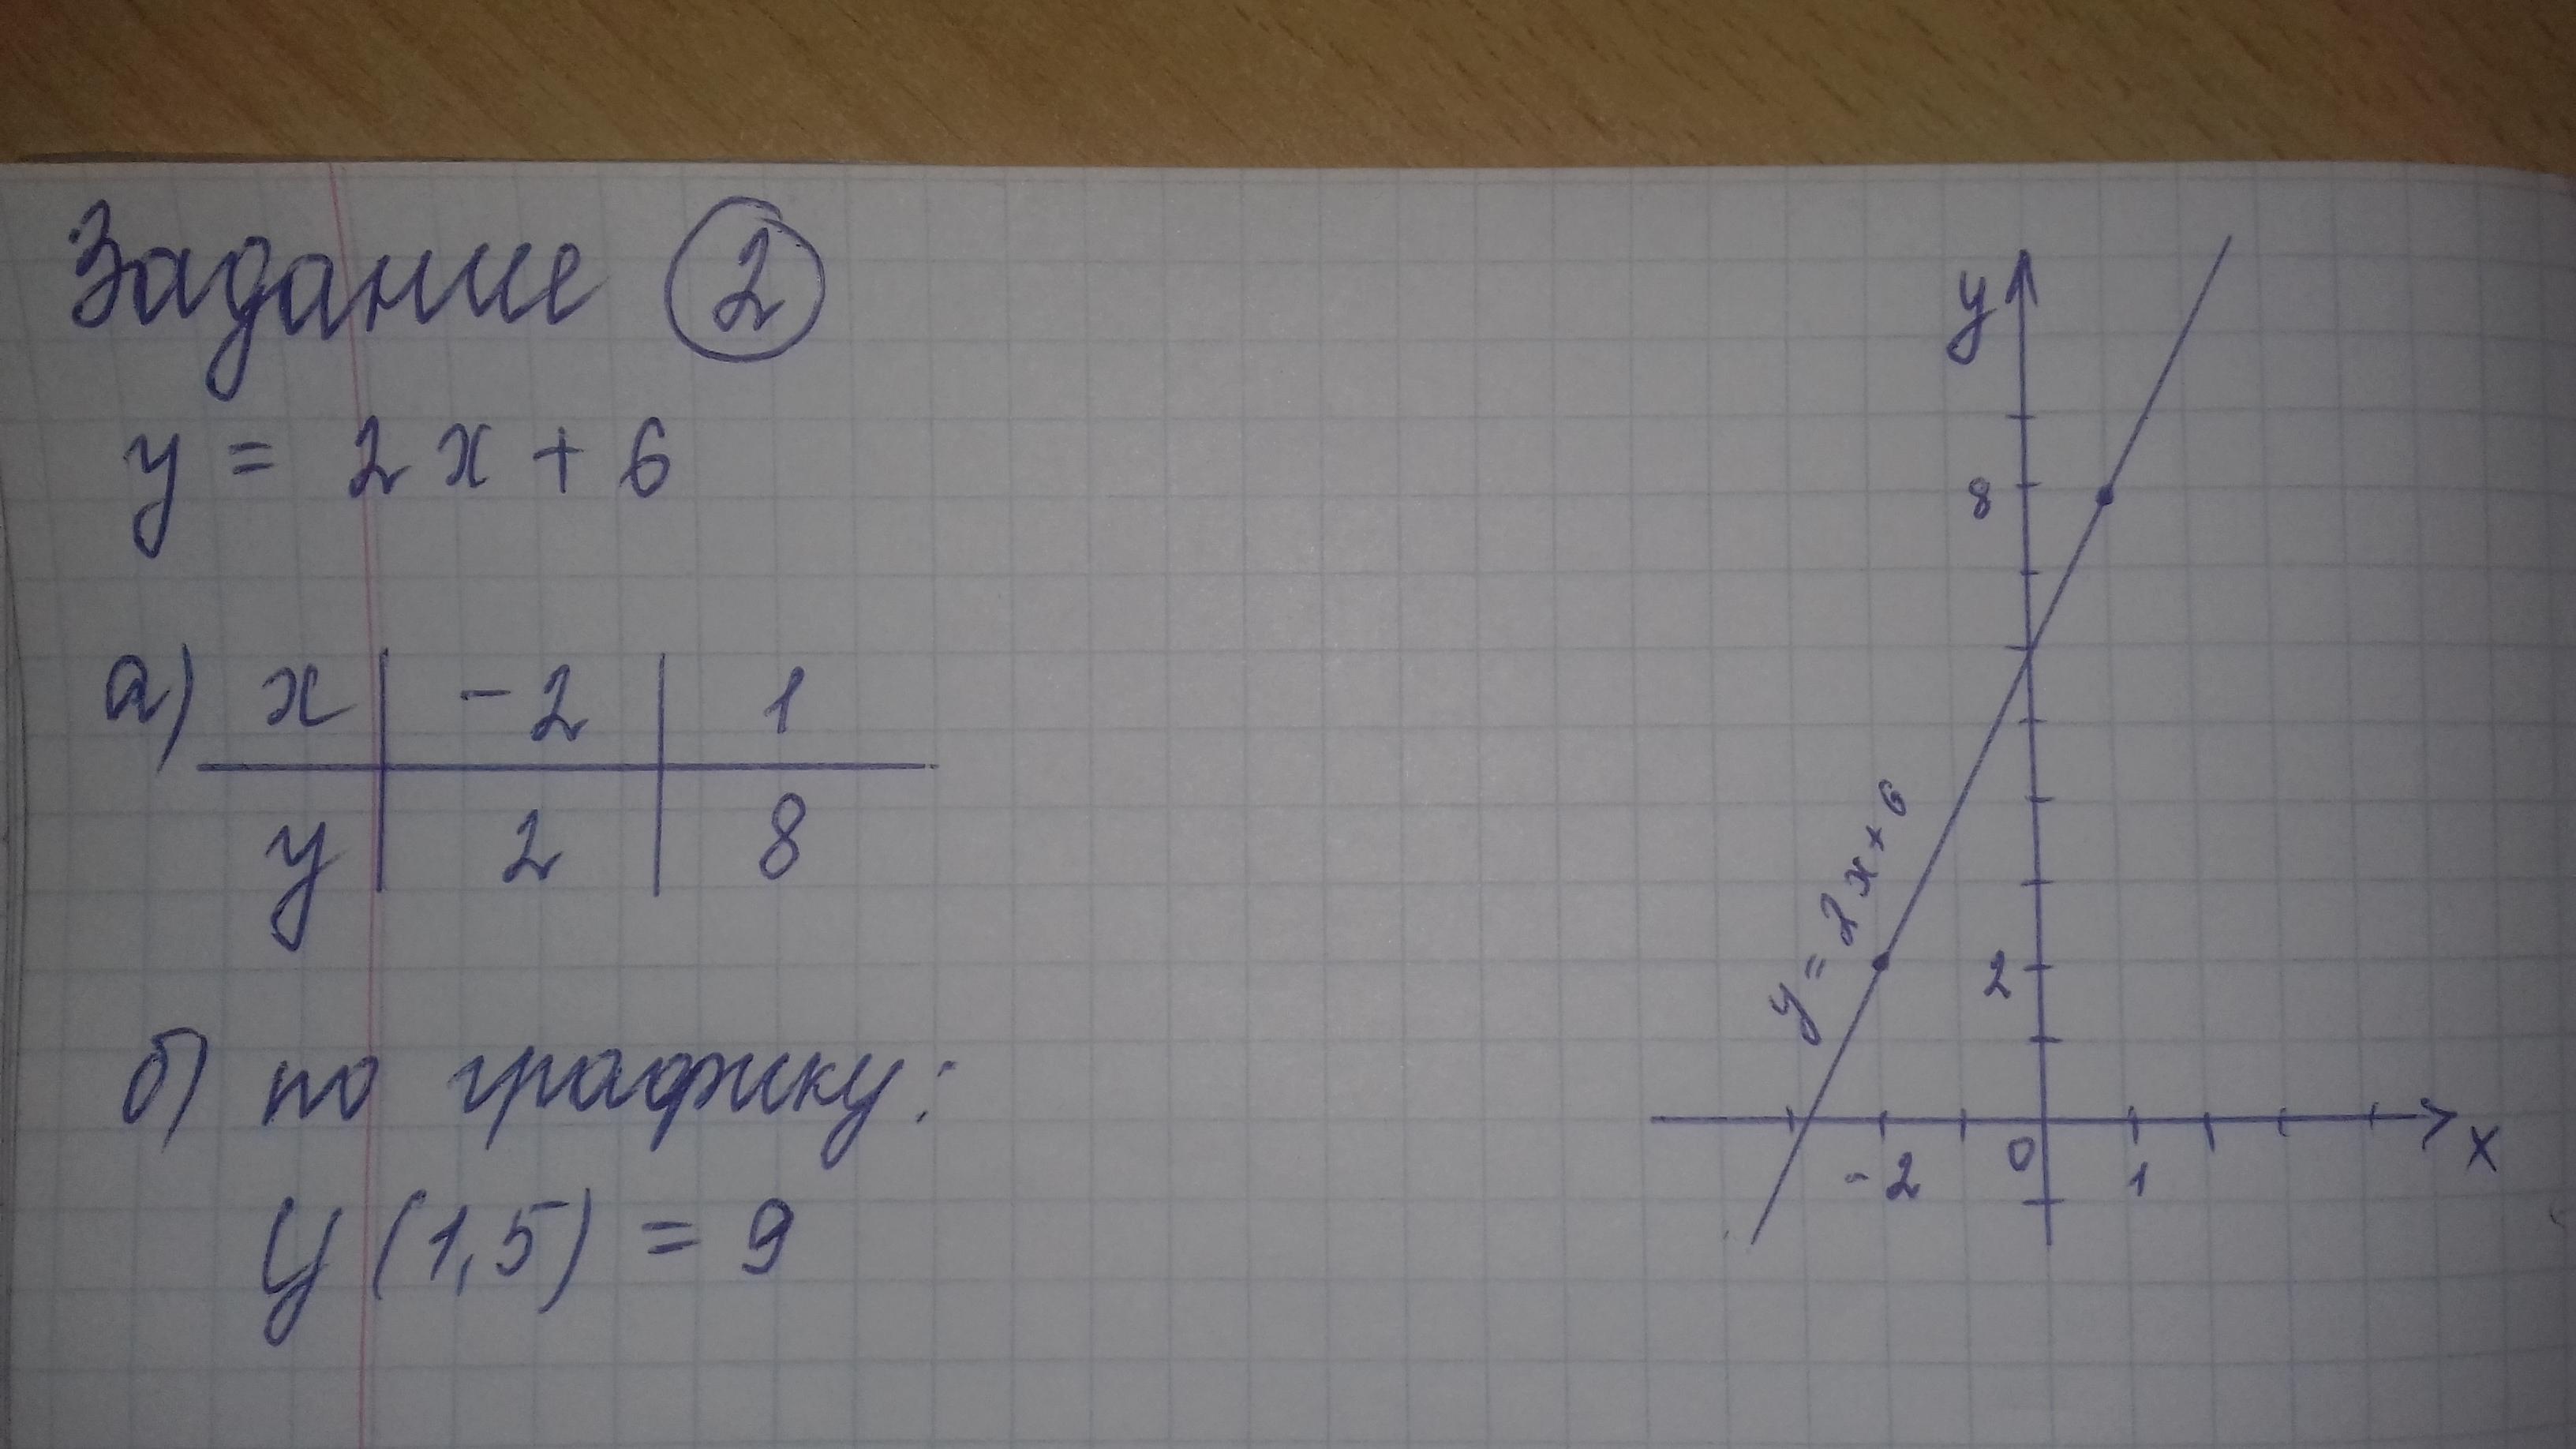 Задание 2
y = 2x + 6
а) x | -2 | 1
y | 2 | 8
б) по графику:
y(1,5) = 9
y
8
y = 2x + 6
2
-2 0 1 x